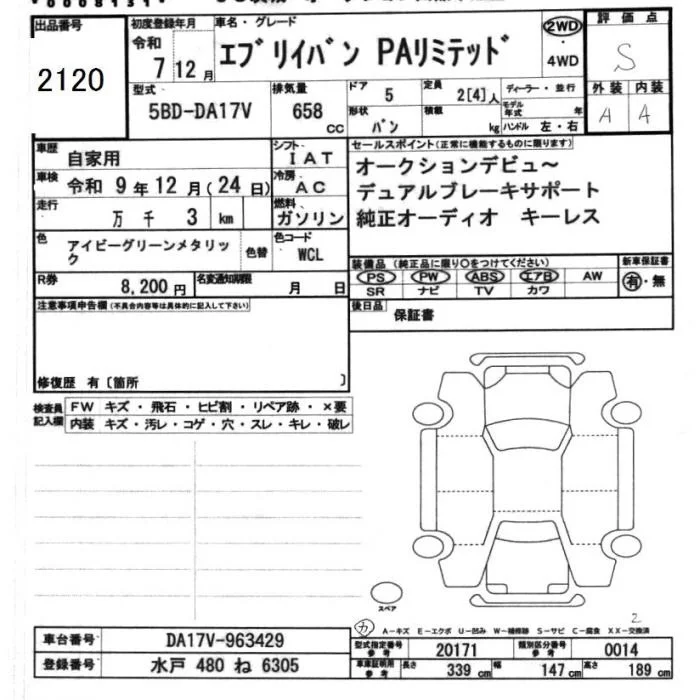 出品番号
2120
初度登録年月
令和
7 12月
車名・グレード
エブリイバン PAリミテッド
2WD
・
4WD
評価点
S
外装 内装
A A
型式
5BD-DA17V
排気量
658
cc
ドア
5
定員
2[4]人
ディーラー・並行
形状
バン
積載
kg
モデル年式
年
ハンドル 左・右
車歴
自家用
シフト
IAT
車検
令和 9年12月(24日)
冷房
AC
走行
万 千 3 km
燃料
ガソリン
色
アイビーグリーンメタリック
色替
色コード
WCL
R券
8,200円
名変通知期限
月 日
セールスポイント(正常に機能するものに限ります)
オークションデビュ~
デュアルブレーキサポート
純正オーディオ キーレス
装備品(純正品に限り○をつけてください)
PS PW ABS エアB AW
SR ナビ TV カワ
新車保証書
有・無
後日品
保証書
注意事項申告欄(不具合内容等は具体的に記入して下さい)
修復歴 有〔箇所 〕
検査員
記入欄
FW キズ・飛石・ヒビ割・リペア跡・×要
内装 キズ・汚レ・コゲ・穴・スレ・キレ・破レ
スペア
2
カ A-キズ E-エクボ U-凹み W-補修跡 S-サビ C-腐食 XX-交換済
車台番号
DA17V-963429
登録番号
水戸 480 ね 6305
型式指定番号
参考
20171
類別区分番号
参考
0014
車庫証明用
参考
長さ
339 cm
幅
147 cm
高さ
189 cm